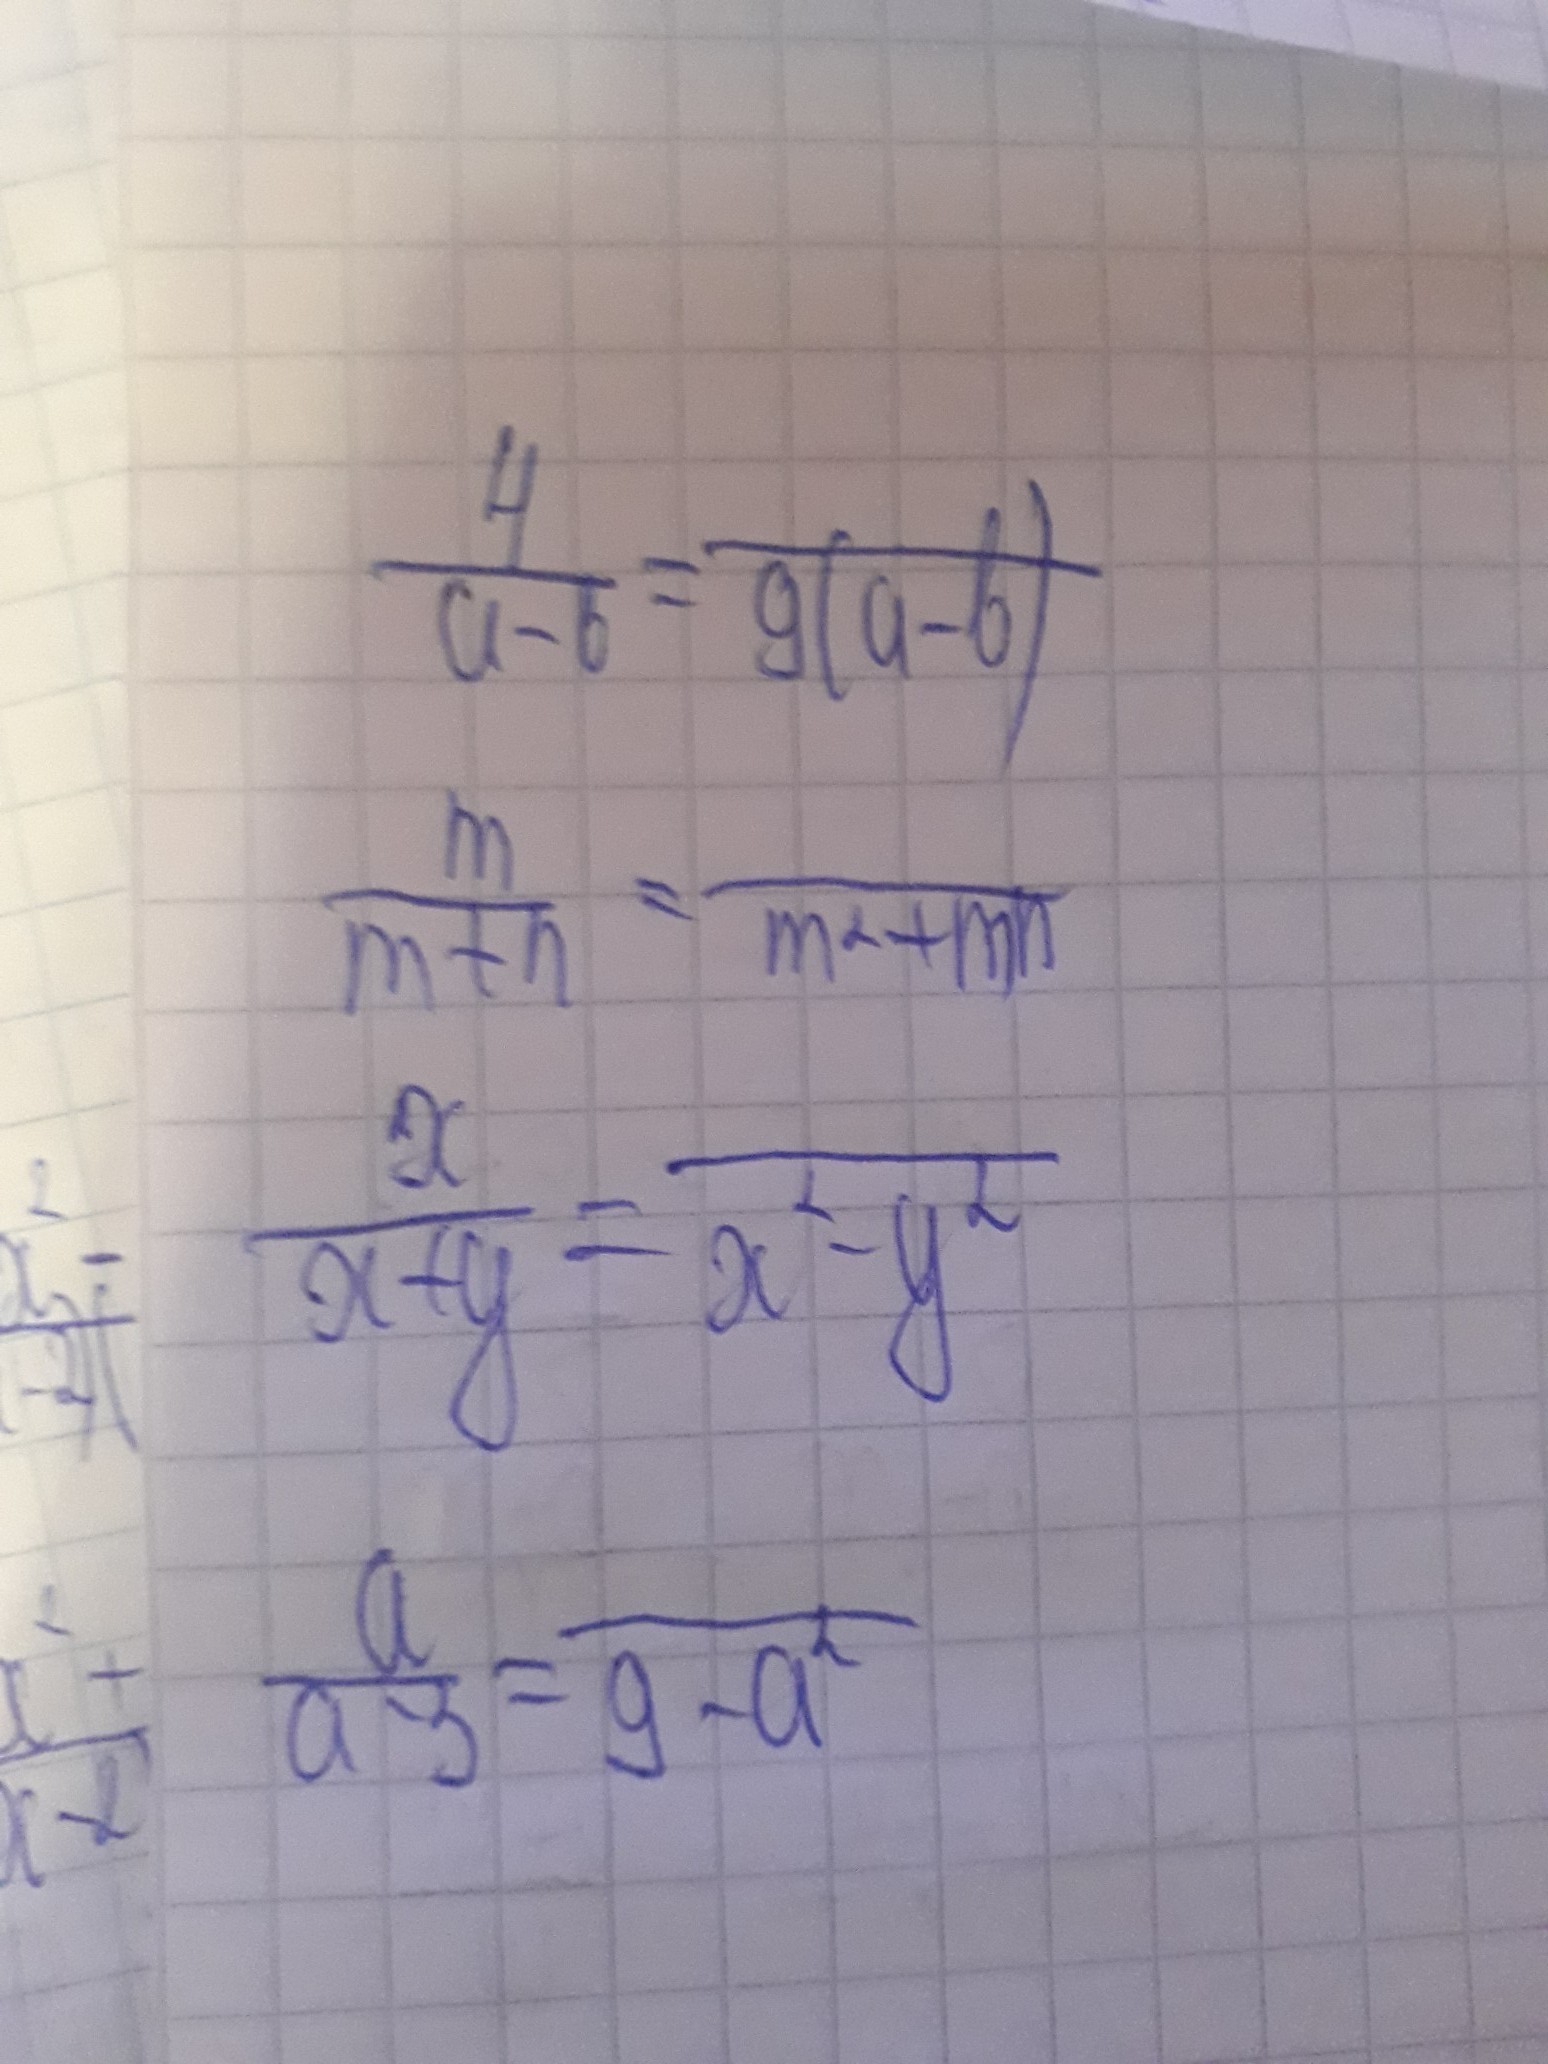 4
a-b = 9(a-b)
m
m+n = m²+mn
x
x+y = x²-y²
a
a-3 = 9-a²
x²+
x-2